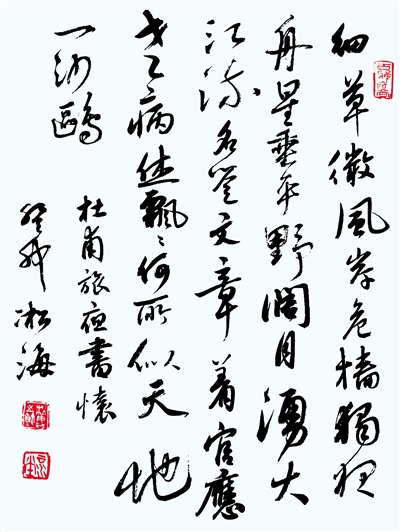 細草微風岸危檣獨夜
舟星垂平野闊月湧大
江流名豈文章着官應
老病休飄〻何所似天地
一沙鷗
杜甫旅夜書懷
淞海